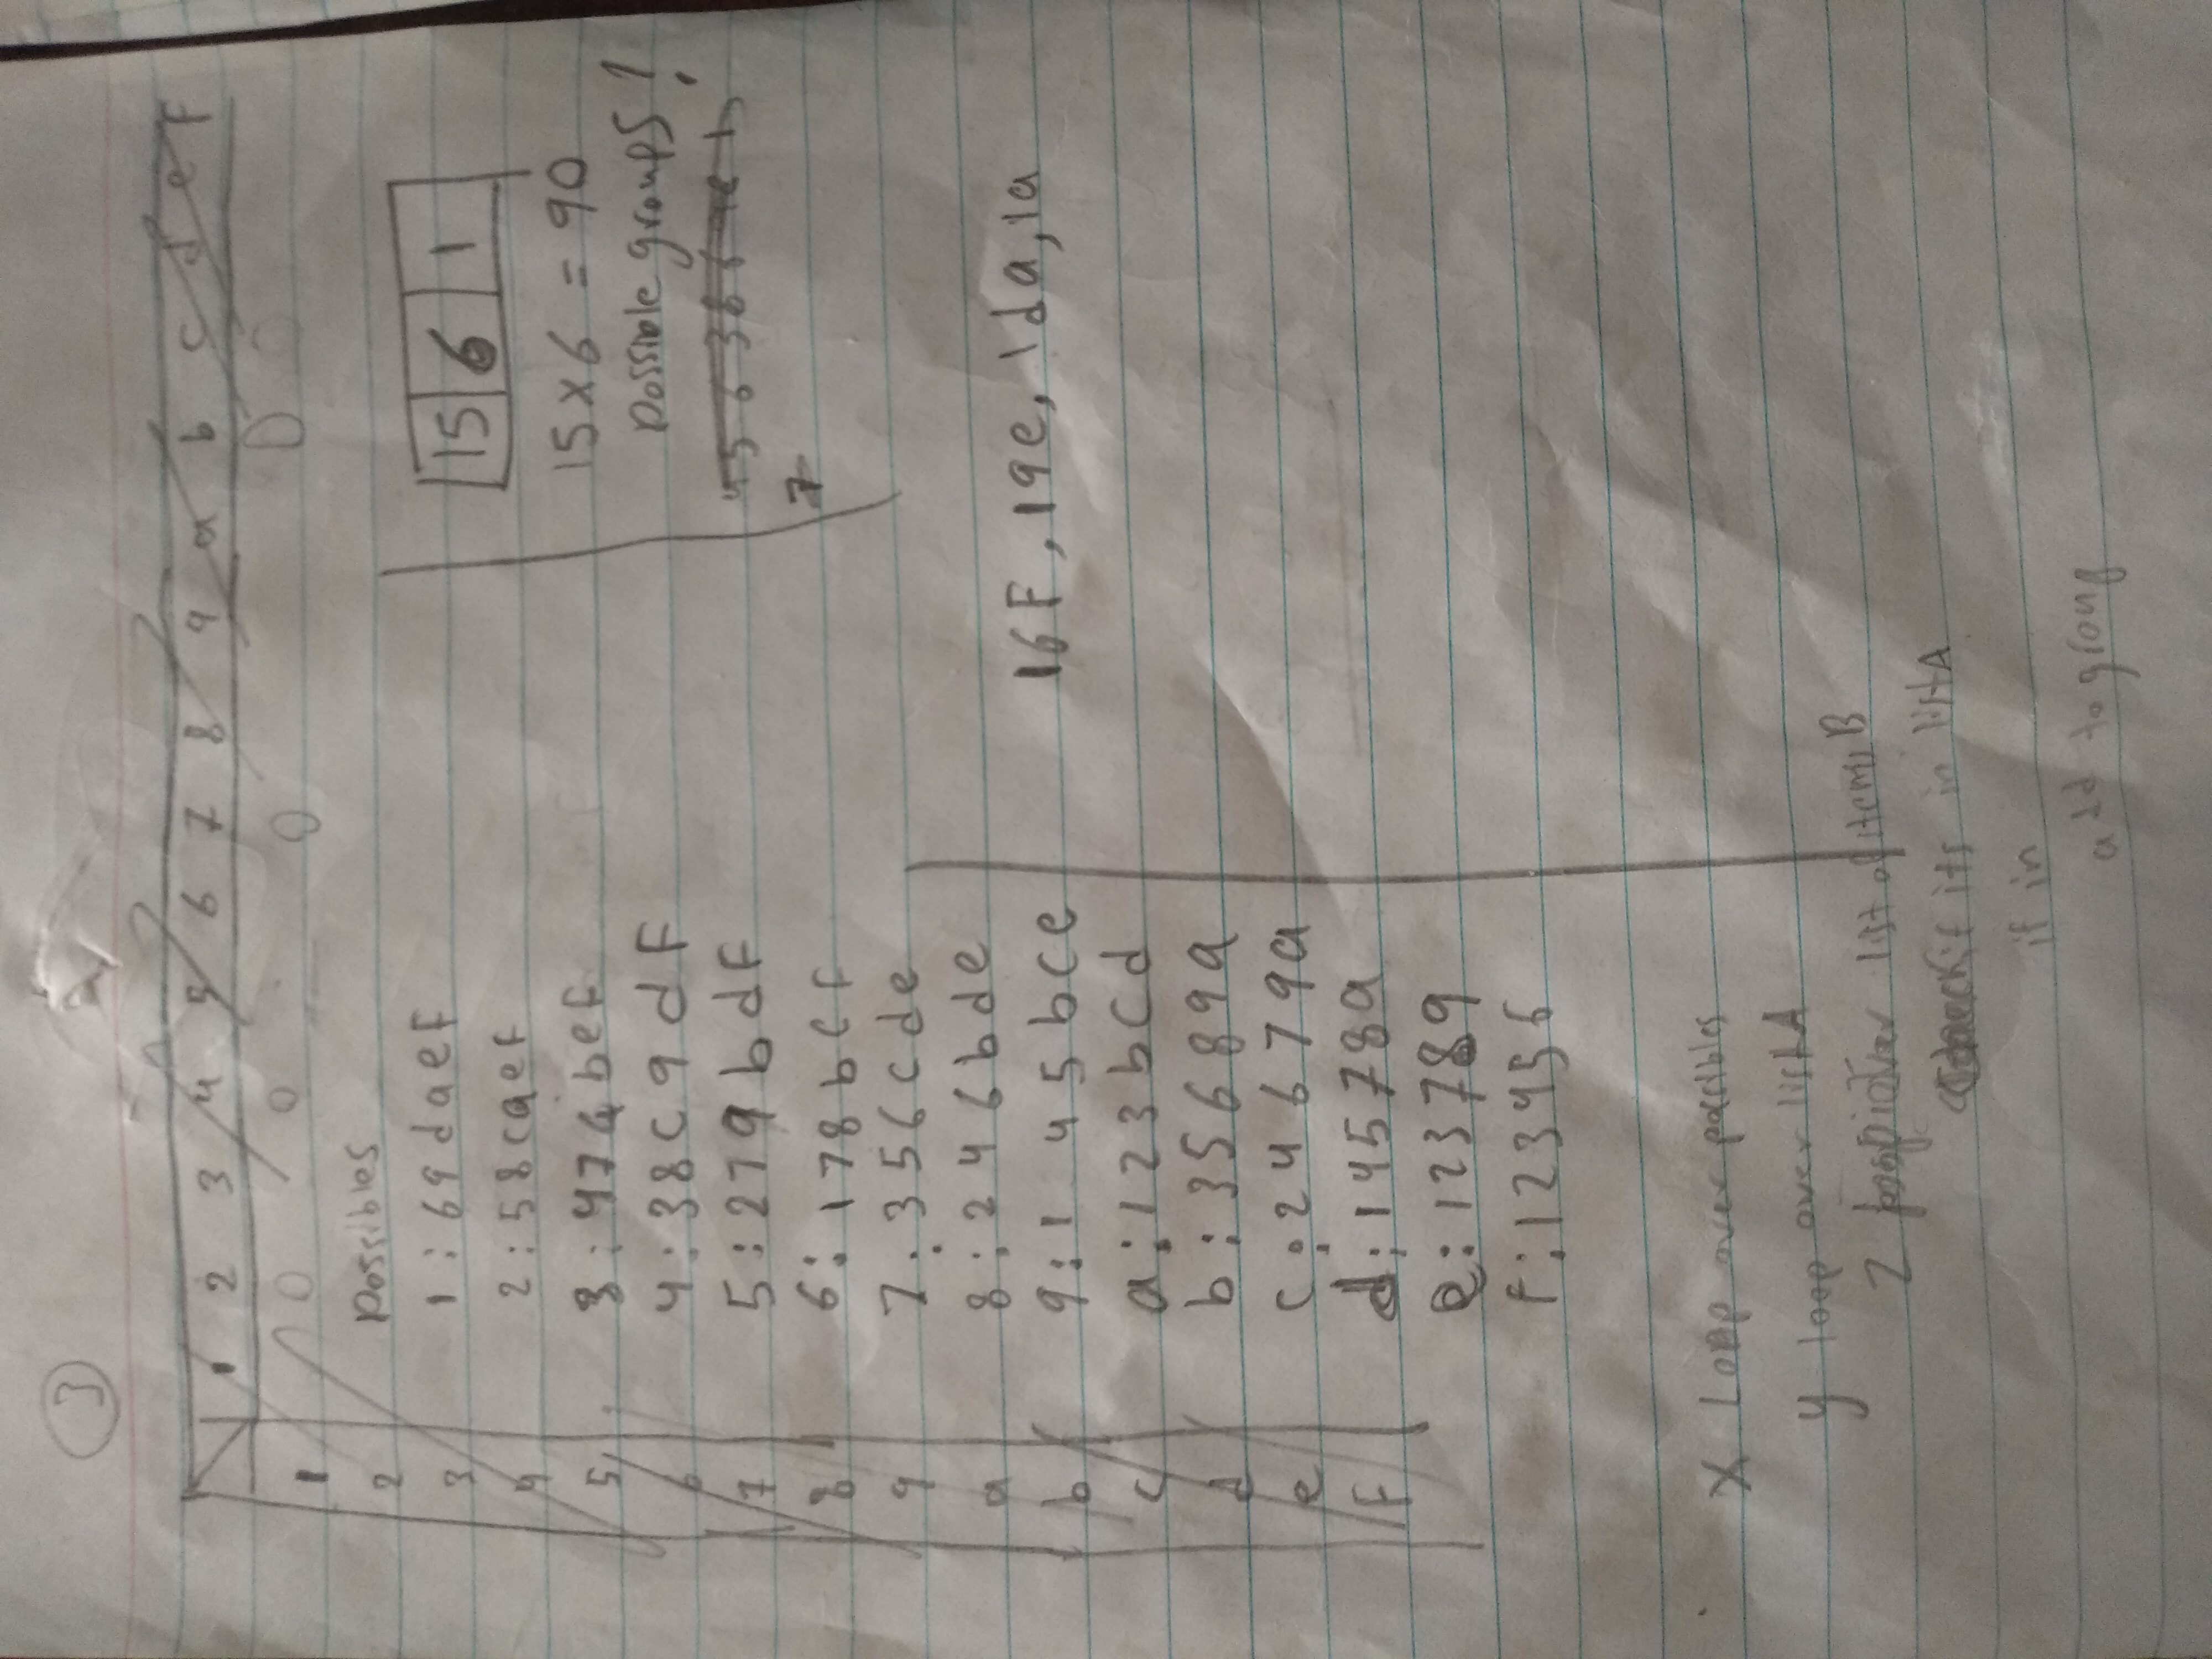 3
1 2 3 4 5 6 7 8 9 a b c d e F
1
2
3
4
5
6
7
8
9
a
b
c
d
e
F
0 0 0 0 0
Possibles
1 : 69daef
2 : 58caef
3 : 47abef
4 : 38c9dF
5 : 279bdF
6 : 178bcf
7 : 356cde
8 : 246bde
9 : 145bce
a : 123bcd
b : 35689a
c : 24679a
d : 14578a
e : 123789
F : 123456
15 6 1
15 x 6 = 90
possible groups !
7
16F, 19e, 1da, 1a
X Loop over possibles
y loop over listA
Z over list of items B
check if its in listA
if in
add to group